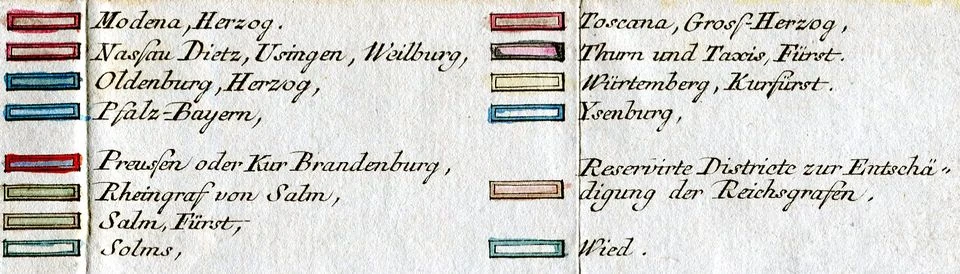 Modena, Herzog.
Naſſau Dietz, Usingen, Weilburg,
Oldenburg, Herzog,
Pfalz-Bayern,
Preuſſen oder Kur Brandenburg,
Rheingraf von Salm,
Salm, Fürst,
Solms,
Toscana, Groſſ-Herzog,
Thurn und Taxis, Fürst.
Würtemberg, Kurfürst.
Ysenburg,
Reservirte Districte zur Entschä-
digung der Reichsgrafen.
Wied.